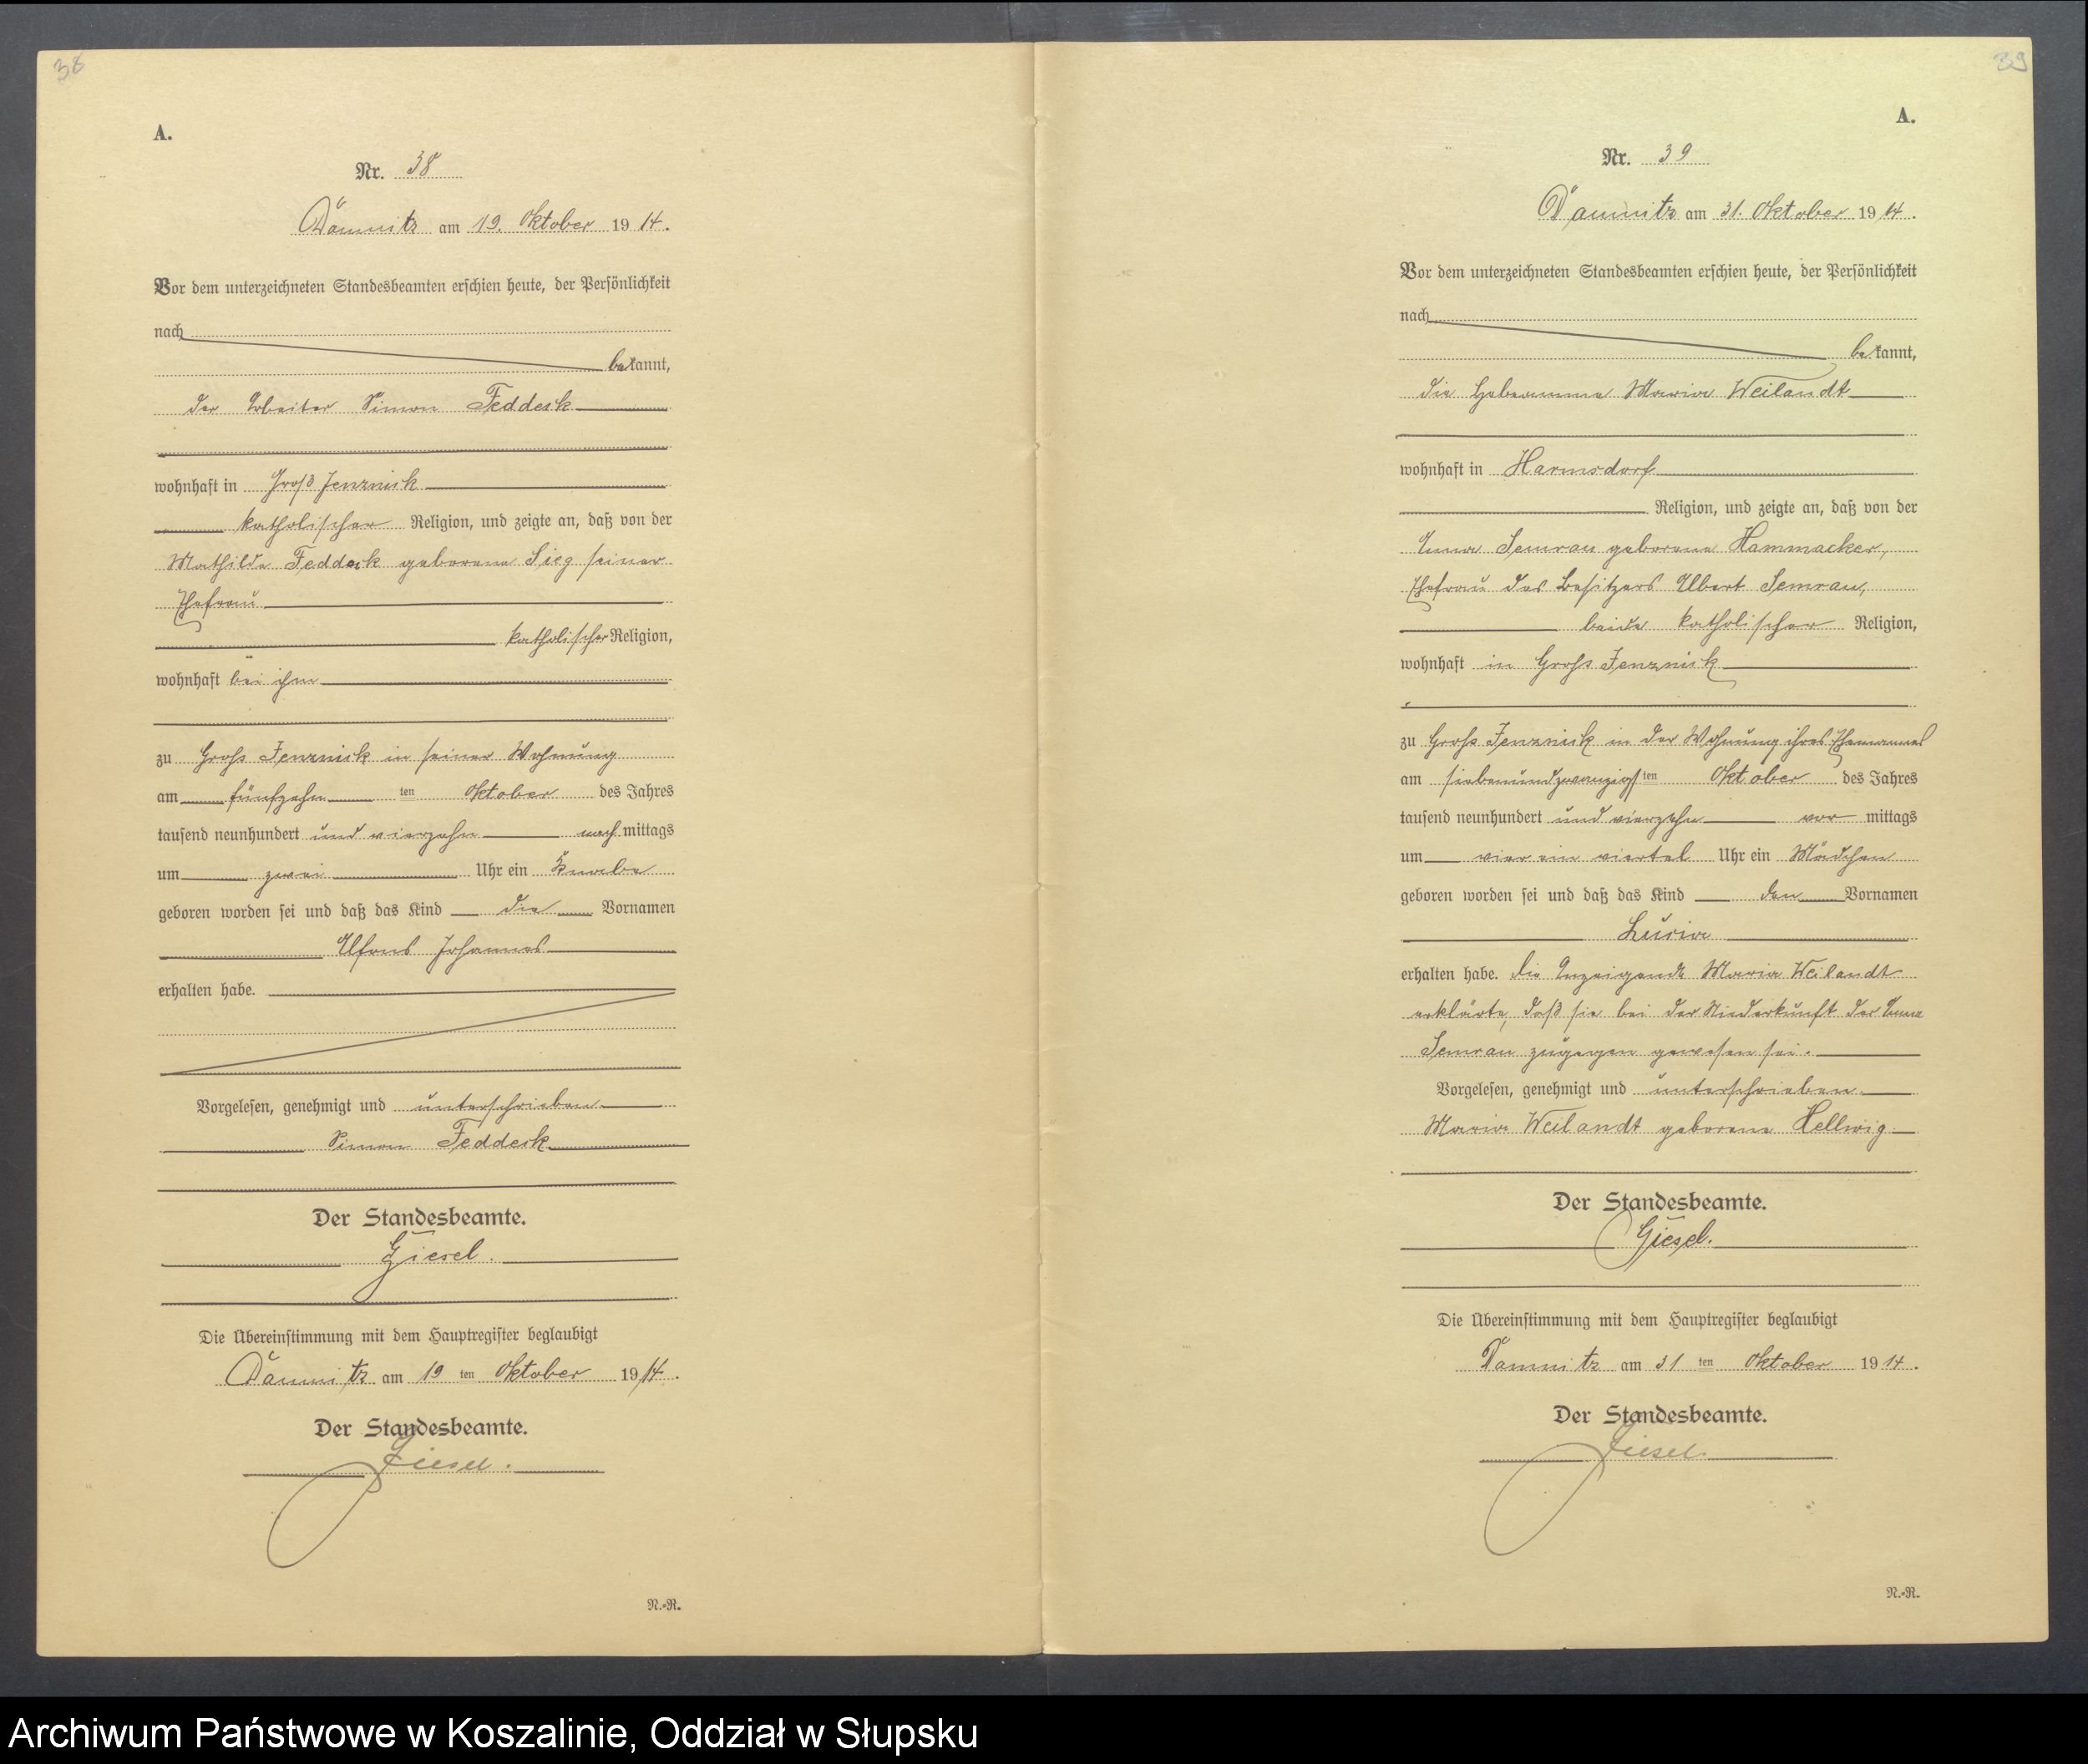 38
A.
Nr. 38
Damnitz am 19. Oktober 1914.
Vor dem unterzeichneten Standesbeamten erschien heute, der Persönlichkeit
nach
bekannt,
der Arbeiter Simon Feddeck
wohnhaft in Groß Jenznick
katholischer Religion, und zeigte an, daß von der
Mathilde Feddeck geborene Sieg seiner
Ehefrau
katholischer Religion,
wohnhaft bei ihm
zu Groß Jenznick in seiner Wohnung
am fünfzehn ten Oktober des Jahres
tausend neunhundert und vierzehn nach mittags
um zwei Uhr ein Knabe
geboren worden sei und daß das Kind die Vornamen
Alfons Johannes
erhalten habe.
Vorgelesen, genehmigt und unterschrieben
Simon Feddeck
Der Standesbeamte.
Giesel.
Die Übereinstimmung mit dem Hauptregister beglaubigt
Damnitz am 19 ten Oktober 1914.
Der Standesbeamte.
Giesel.
N.-R.
39
A.
Nr. 39
Damnitz am 31. Oktober 1914.
Vor dem unterzeichneten Standesbeamten erschien heute, der Persönlichkeit
nach
bekannt,
die Hebeamme Maria Weilandt
wohnhaft in Harmsdorf
Religion, und zeigte an, daß von der
Anna Semrau geborene Hammacker,
Ehefrau des Besitzers Albert Semrau,
beide katholischer Religion,
wohnhaft in Groß Jenznick
zu Groß Jenznick in der Wohnung ihres Ehemannes
am siebenundzwanzigsten Oktober des Jahres
tausend neunhundert und vierzehn vor mittags
um vier ein viertel Uhr ein Mädchen
geboren worden sei und daß das Kind den Vornamen
Luzia
erhalten habe. Die Anzeigende Maria Weilandt
erklärte, daß sie bei der Niederkunft der Anna
Semrau zugegen gewesen sei.
Vorgelesen, genehmigt und unterschrieben.
Maria Weilandt geborene Hellwig
Der Standesbeamte.
Giesel.
Die Übereinstimmung mit dem Hauptregister beglaubigt
Damnitz am 31 ten Oktober 1914.
Der Standesbeamte.
Giesel.
N.-R.
Archiwum Państwowe w Koszalinie, Oddział w Słupsku